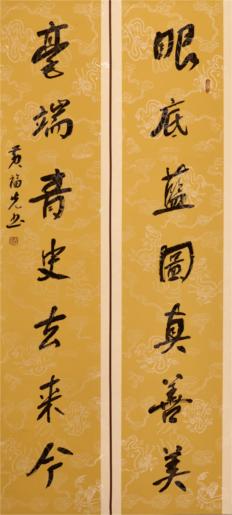 眼底藍圖真善美
毫端青史去來今
黄福先書